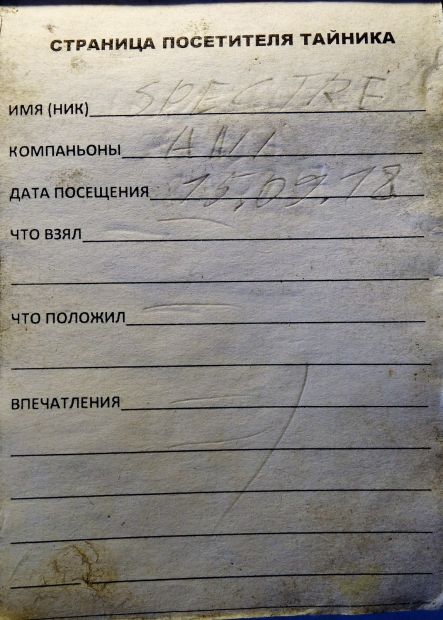 СТРАНИЦА ПОСЕТИТЕЛЯ ТАЙНИКА
ИМЯ (НИК) SPECTRE
КОМПАНЬОНЫ ANI
ДАТА ПОСЕЩЕНИЯ 15.09.18
ЧТО ВЗЯЛ
ЧТО ПОЛОЖИЛ
ВПЕЧАТЛЕНИЯ